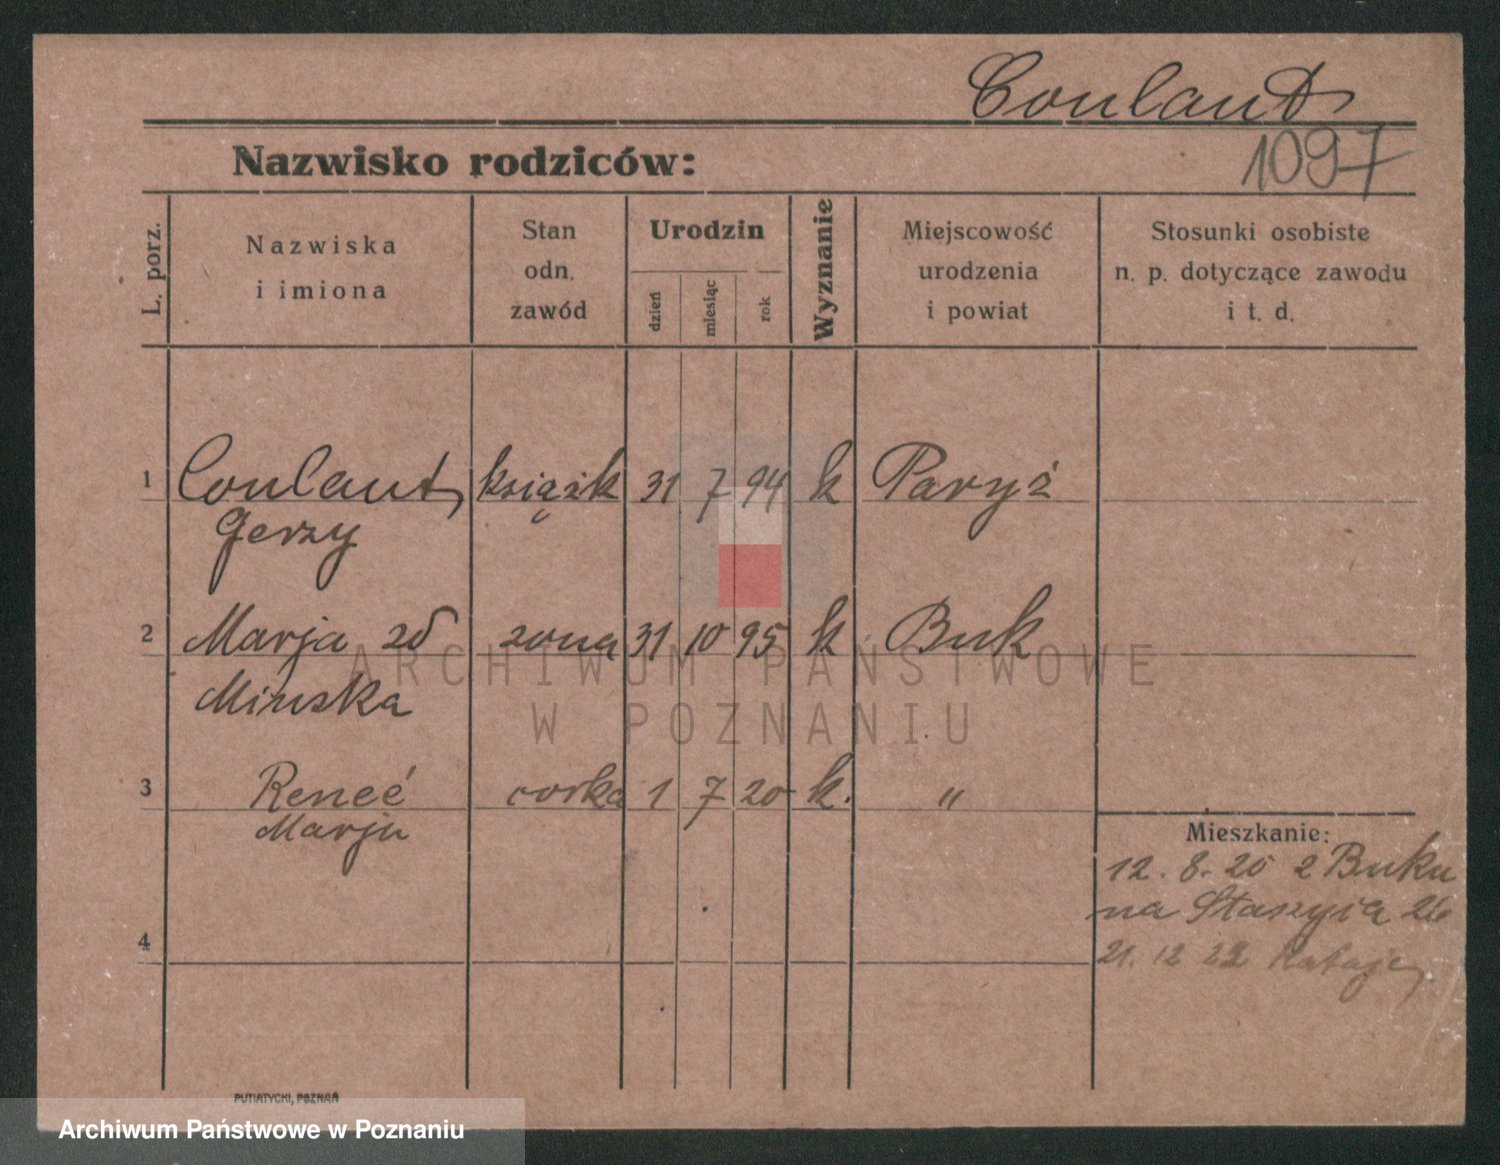 Coulant
1097
Nazwisko rodziców:
L. porz.
Nazwiska
i imiona
Stan
odn.
zawód
Urodzin
dzień
miesiąc
rok
Wyznanie
Miejscowość
urodzenia
i powiat
Stosunki osobiste
n. p. dotyczące zawodu
i t. d.
1 Coulant książk 31 7 94 k Paryż
Jerzy
2 Marja zona 31 10 95 k Buk
ARCHIWUM PAŃSTWOWE
Minska
W POZNANIU
3 Reneé corka 1 7 20 k. "
Marja
Mieszkanie:
12. 8. 20 z Buku
na Staszyca 26
4
21. 12 22
PUTIATYCKI, POZNAŃ
Archiwum Państwowe w Poznaniu